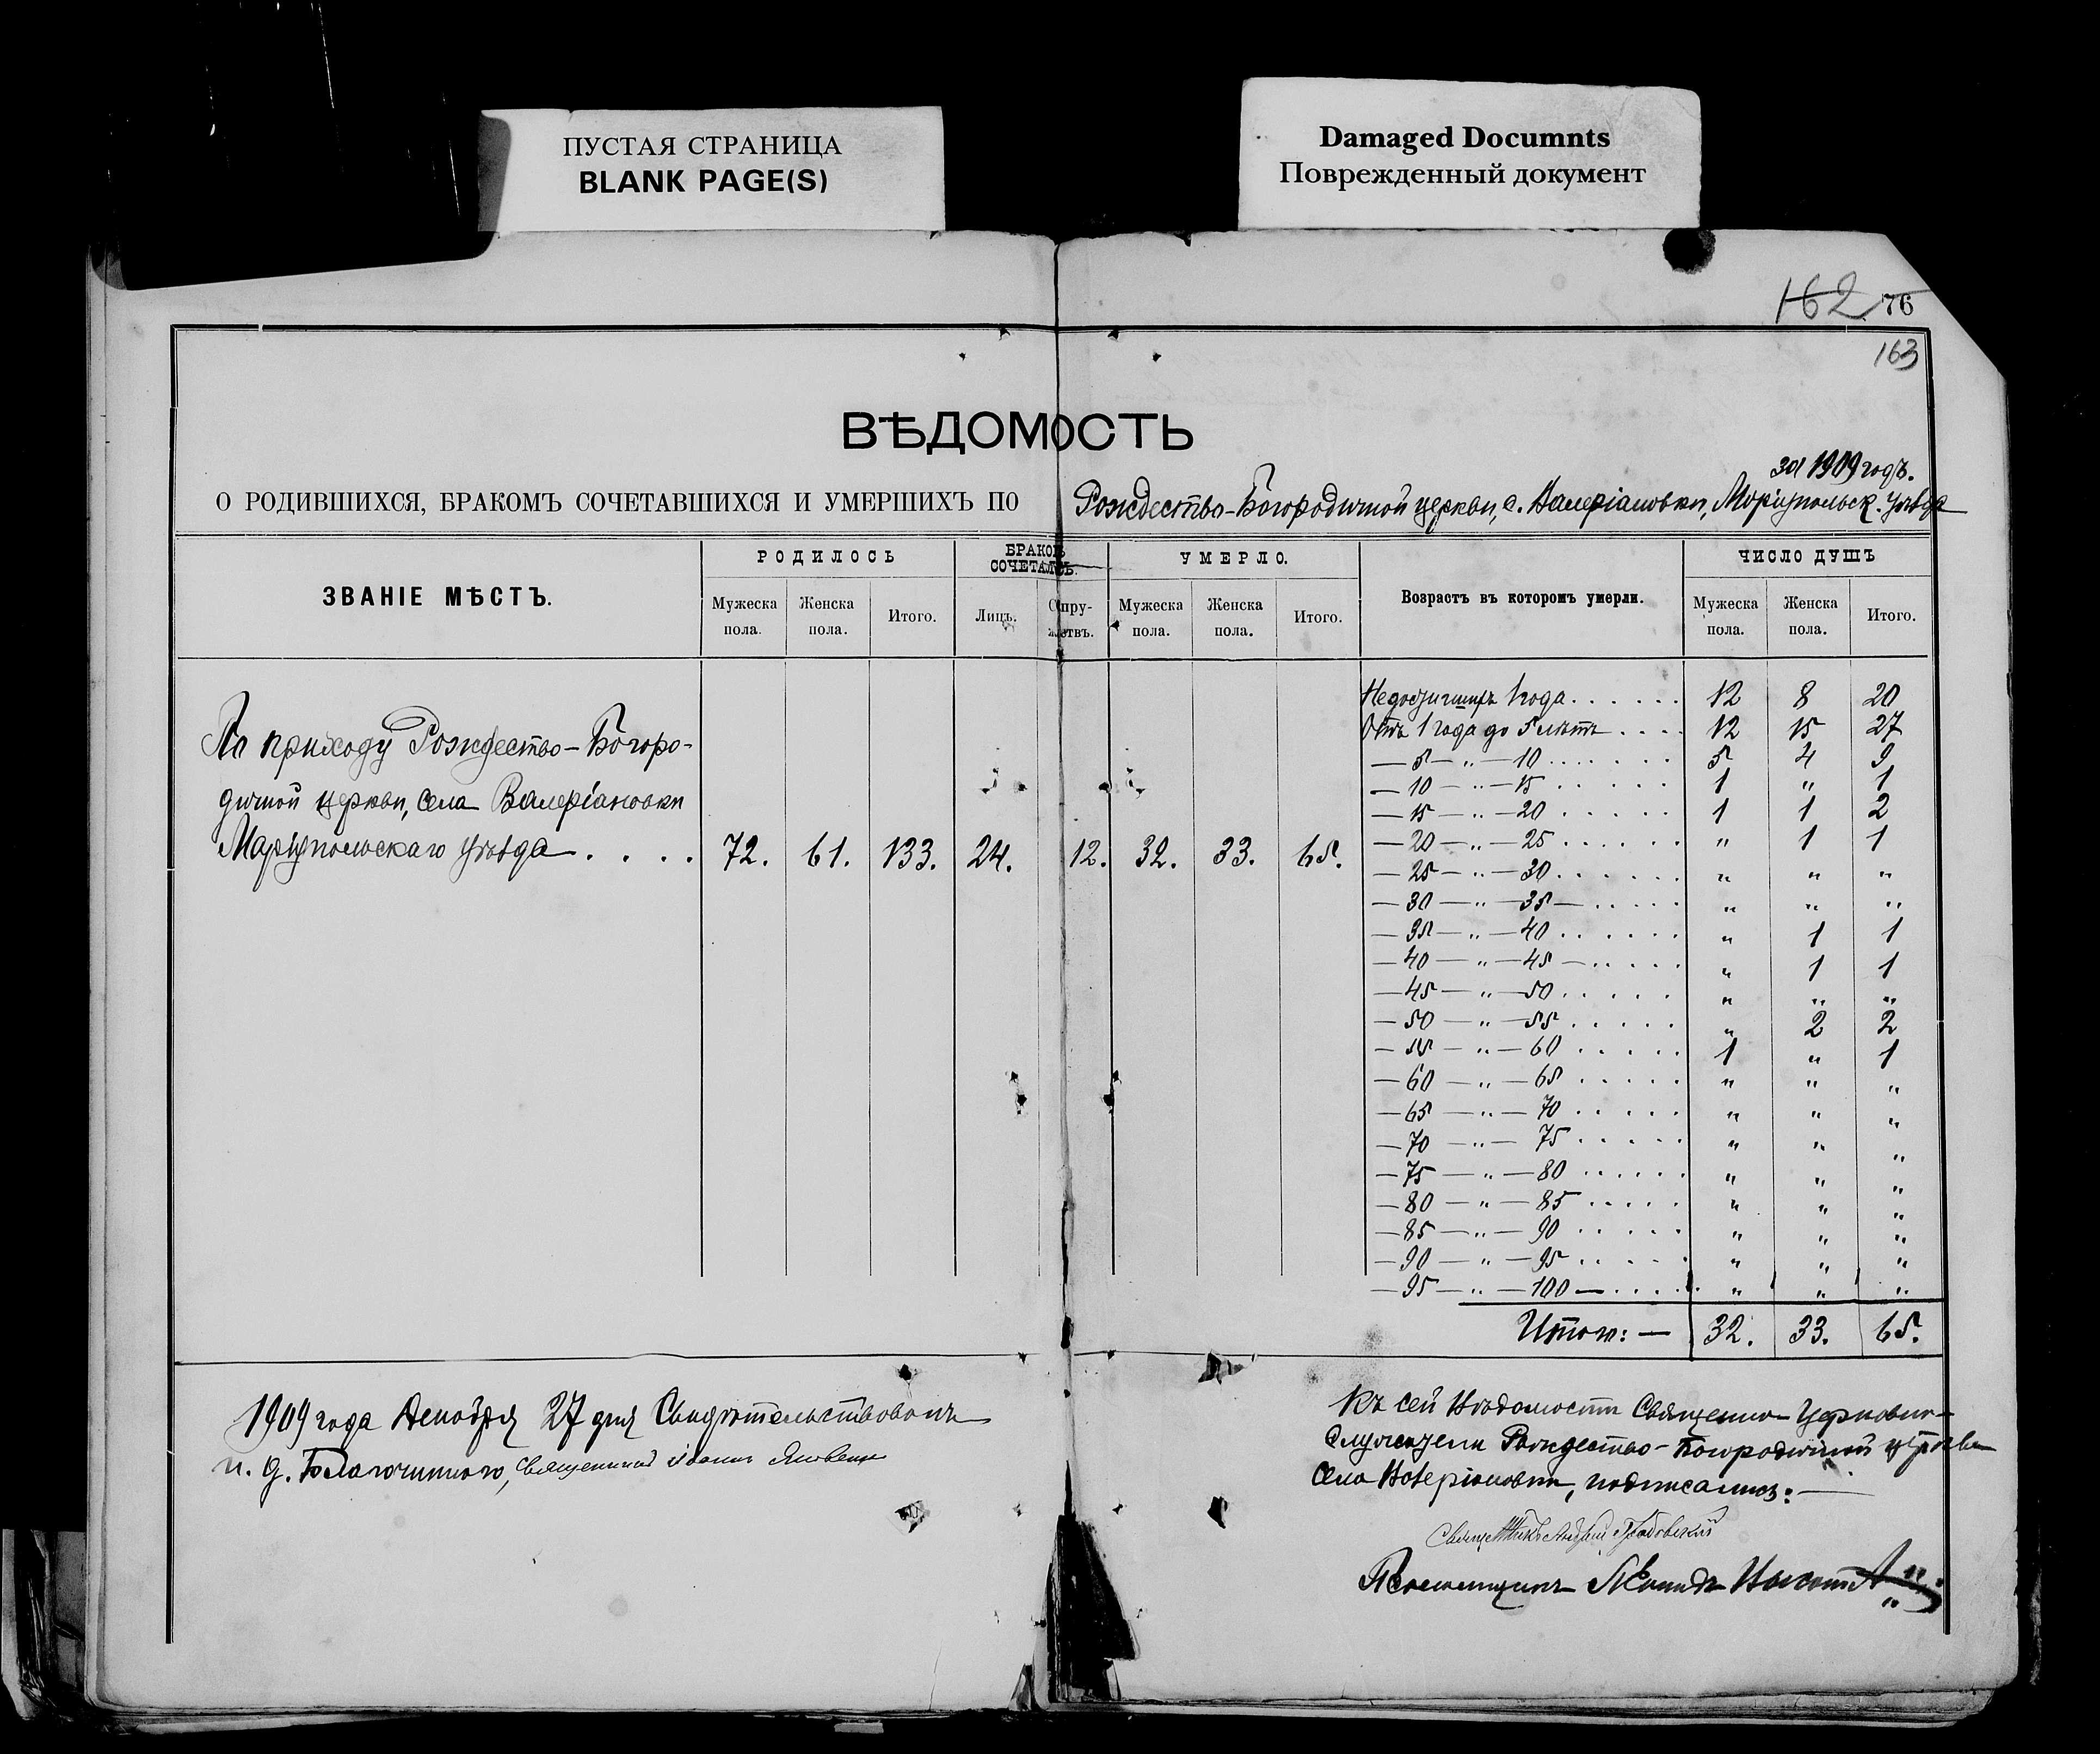 ПУСТАЯ СТРАНИЦА
BLANK PAGE(S)
Damaged Documnts
Поврежденный документ
162 76
163
ВѢДОМОСТЬ
за 1909 годъ.
О РОДИВШИХСЯ, БРАКОМЪ СОЧЕТАВШИХСЯ И УМЕРШИХЪ ПО Рождество-Богородичной церкви, с. Валеріановки, Маріупольск. уѣзда
ЗВАНІЕ МѢСТЪ.
РОДИЛОСЬ
Мужеска пола.
Женска пола.
Итого.
БРАКОМЪ СОЧЕТАЛОСЬ.
Лицъ.
Супружествъ.
УМЕРЛО.
Мужеска пола.
Женска пола.
Итого.
Возрастъ въ которомъ умерли.
ЧИСЛО ДУШЪ
Мужеска пола.
Женска пола.
Итого.
По приходу Рождество-Богоро-
дичной церкви, села Валеріановки
Маріупольскаго уѣзда . . . . 72. 61. 133. 24. 12. 32. 33. 65.
Недостигшихъ 1 года . . . . . . 12 8 20
Отъ 1 года до 5 лѣтъ . . . . 12 15 27
— 5 — „ — 10 . . . . . . . 5 4 9
— 10 — „ — 15 . . . . . . 1 „ 1
— 15 — „ — 20 . . . . . . 1 1 2
— 20 — „ — 25 . . . . . . „ 1 1
— 25 — „ — 30 . . . . . . „ „ „
— 30 — „ — 35 — . . . . . „ „ „
— 35 — „ — 40 . . . . . . „ 1 1
— 40 — „ — 45 — . . . . . „ 1 1
— 45 — „ — 50 . . . . . „ „ „
— 50 — „ — 55 . . . . . „ 2 2
— 55 — „ — 60 . . . . . 1 „ 1
— 60 — „ — 65 . . . . . „ „ „
— 65 — „ — 70 . . . . . „ „ „
— 70 — „ — 75 . . . . . „ „ „
— 75 — „ — 80 . . . . . . „ „ „
— 80 — „ — 85 . . . . . „ „ „
— 85 — „ — 90 . . . . . „ „ „
— 90 — „ — 95 . . . . . „ „ „
— 95 — „ — 100 — . . . . . „ „ „
Итого: — 32. 33. 65.
1909 года Декабря 27 дня Свидѣтельствовалъ
и. д. Благочиннаго, священникъ Іоаннъ Яковенко
Къ сей Вѣдомости Священно-Церковно-
служители Рождество-Богородичной церкви
села Валеріановки, подписались: —
Священникъ Андрей
Псаломщикъ Леонидъ